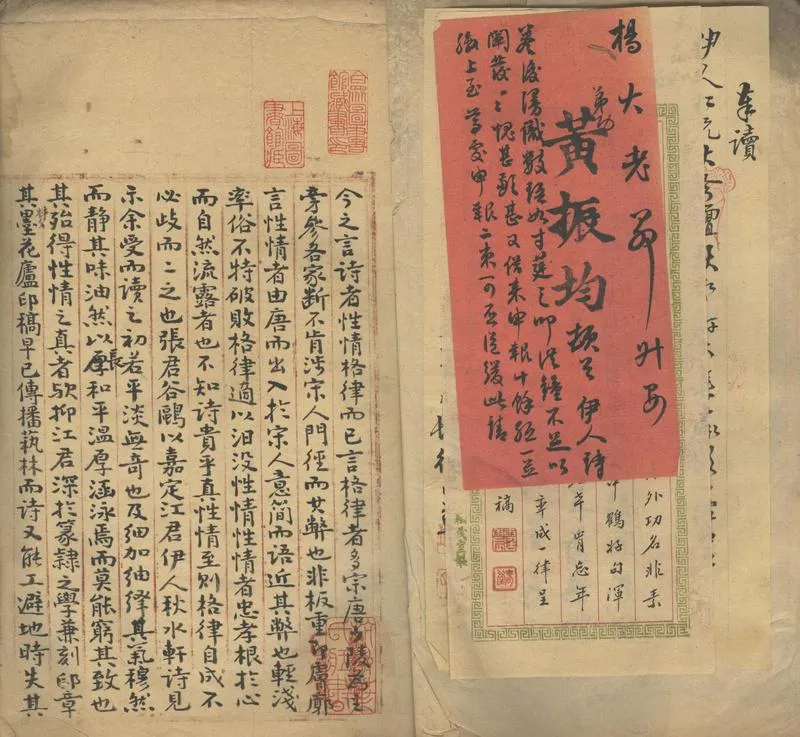 奉讀
楊大老爺升安
弟功黃振均頓首伊人詩
卷浚漫識數語如寸莛之叩洪鐘不足以
闡發一二愧甚歉甚又借来申報十餘紙一并
繳上至處申報二束可否從緩此請
外功名非素
鶴好自渾
年肯忘年
章成一律呈
稿
上海圖書館藏
今之言詩者性情格律而已言格律者多宗唐少陵爲主
旁參各家斷不肯涉宋人門徑而其弊也非板重即膚廓
言性情者由唐而出入於宋人意簡而語近其弊也輕淺
率俗不特破敗格律適以汩没性情性情者忠孝根於心
而自然流露者也不知詩貴乎真性情至則格律自成不
必歧而二之也張君谷鷗以嘉定江君伊人秋水軒詩見
示余受而讀之初若平淡無奇也及細加紬繹其氣穆然
而靜其味油然以長和平温厚涵泳焉而莫能窮其致也
其殆得性情之真者歟抑江君深於篆隸之學兼刻印章
其墨花廬印稿早已傳播蓺林而詩又能工避地時失其